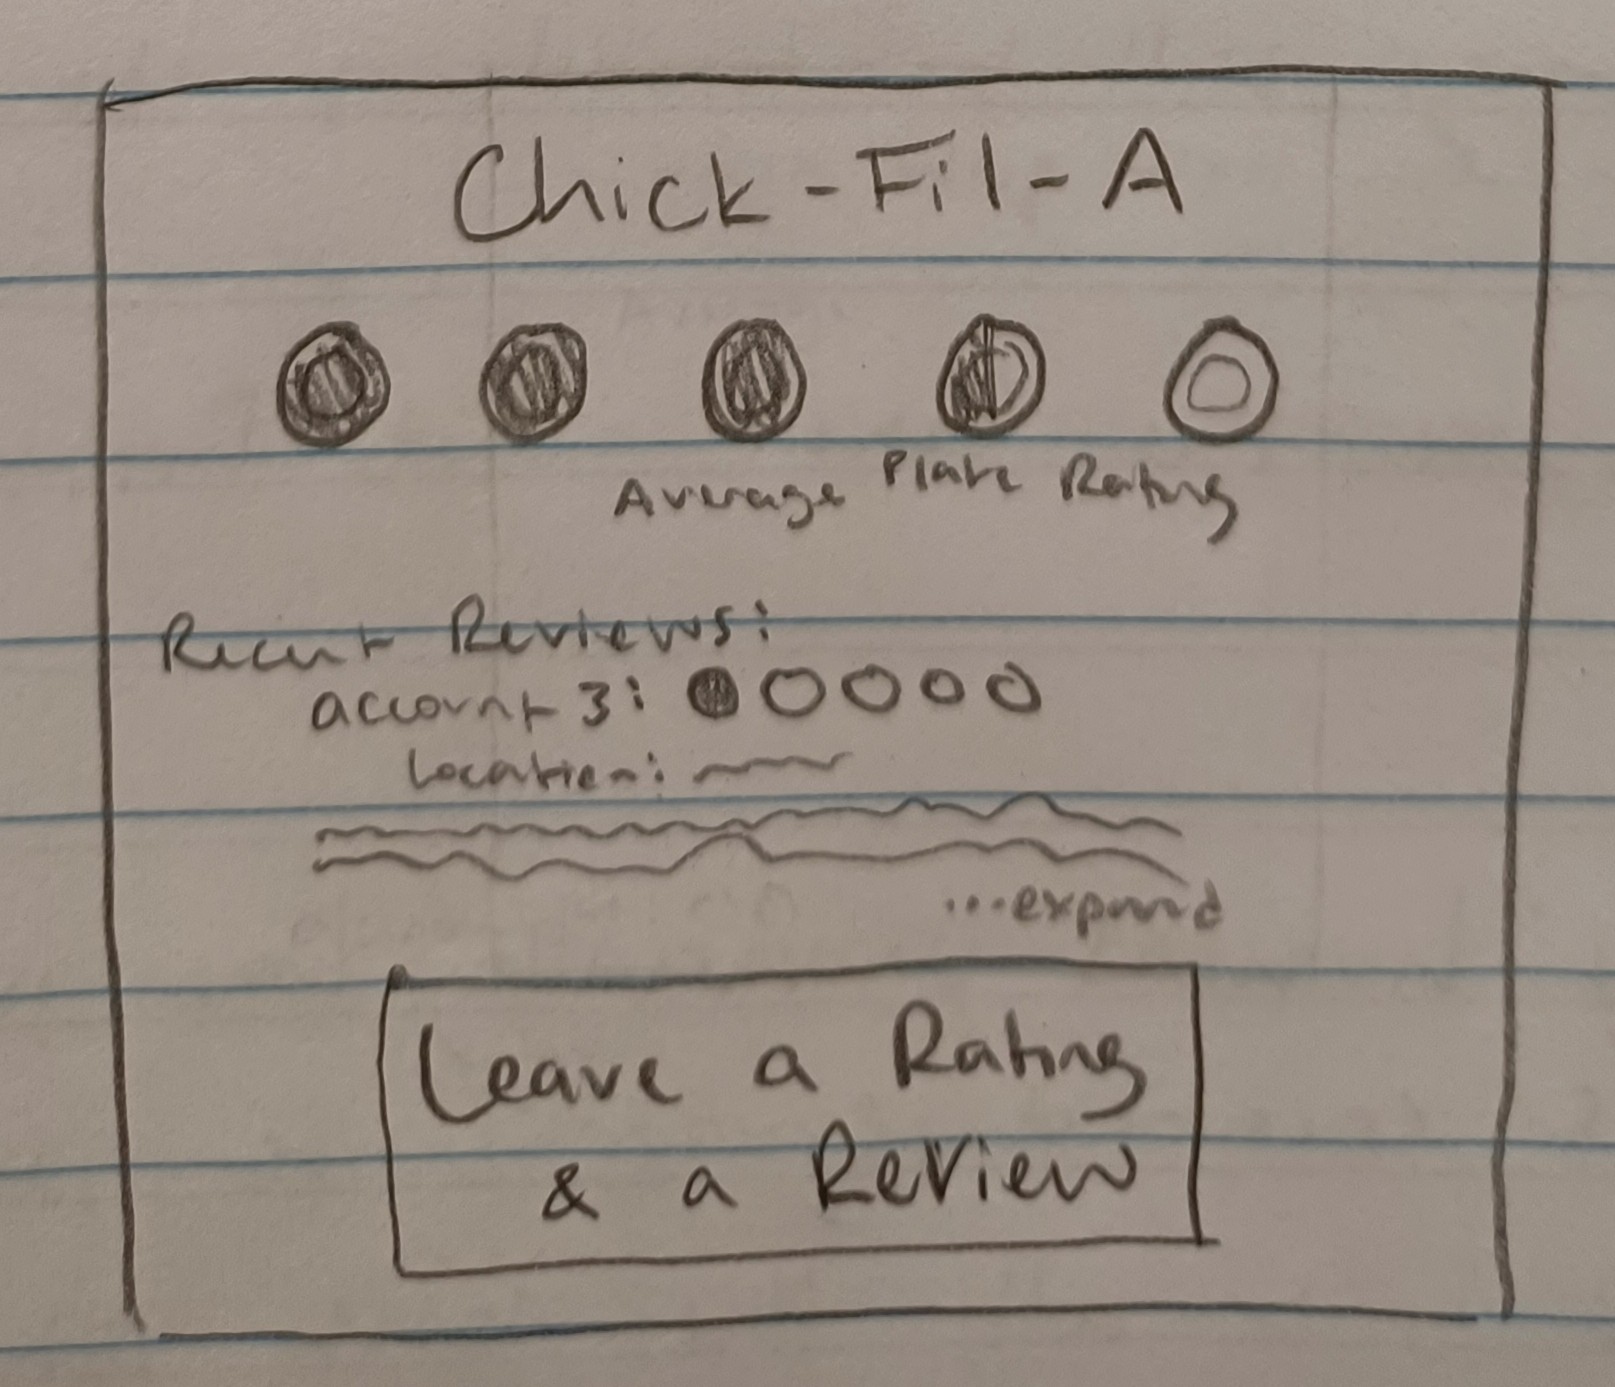 Chick-Fil-A
Average Plate Rating
Recent Reviews:
account 3:
location:
...expand
Leave a Rating
& a Review